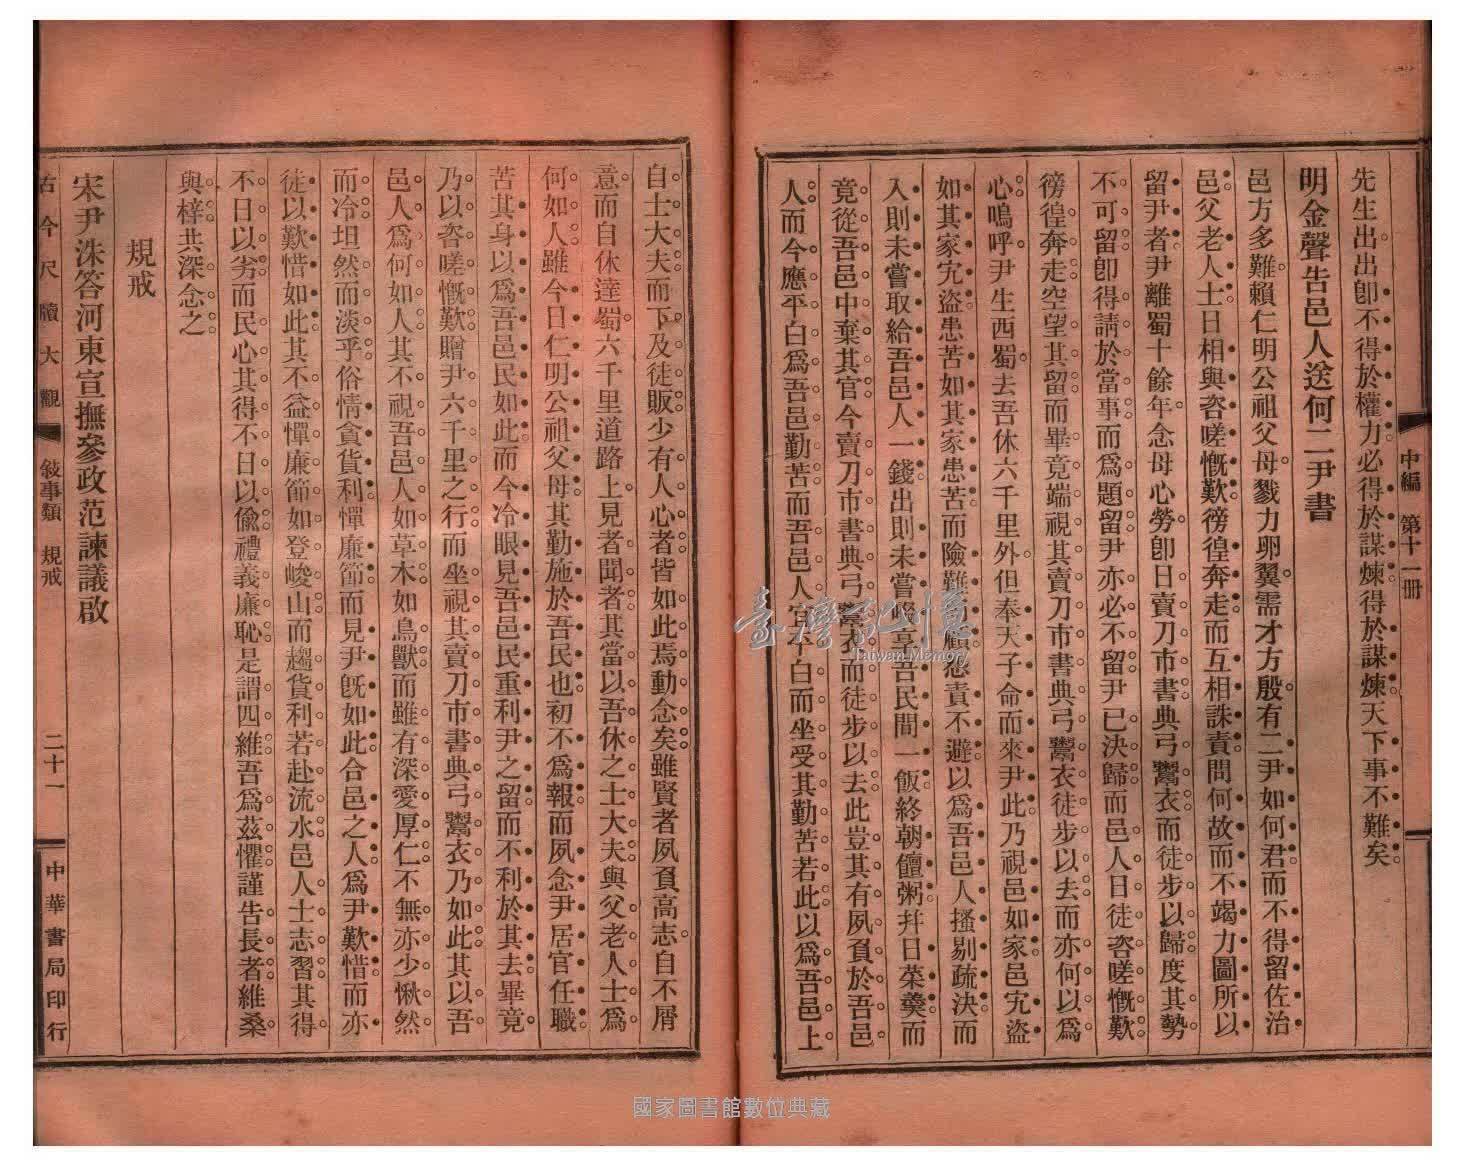 中編　第十一冊
先生出出卽不得於權力必得於謀煉得於謀煉天下事不難矣
明金聲告邑人送何二尹書
邑方多難賴仁明公祖父母戮力卵翼需才方殷有二尹如何君而不得留佐治
邑父老人士日相與咨嗟慨歎徬徨奔走而互相誅責問何故而不竭力圖所以
留尹者尹離蜀十餘年念母心勞卽日賣刀市書典弓鬻衣而徒步以歸度其勢
不可留卽得請於當事而爲題留尹亦必不留尹已決歸而邑人日徒咨嗟慨歎
徬徨奔走空望其留而畢竟端視其賣刀市書典弓鬻衣徒步以去而亦何以爲
心嗚呼尹生西蜀去吾休六千里外但奉天子命而來尹此乃視邑如家邑宄盜
如其家宄盜患苦如其家患苦而險難不顧怨責不避以爲吾邑人搔剔疏決而
入則未嘗取給吾邑人一錢出則未嘗饗吾民間一飯終朝饘粥幷日菜羹而
竟從吾邑中棄其官今賣刀市書典弓鬻衣而徒步以去此豈其有夙負於吾邑
人而今應平白爲吾邑勤苦而吾邑人宜平白而坐受其勤苦若此以爲吾邑上
自士大夫而下及徒販少有人心者皆如此焉動念矣雖賢者夙負高志自不屑
意而自休達蜀六千里道路上見者聞者其當以吾休之士大夫與父老人士爲
何如人雖今日仁明公祖父母其勤施於吾民也初不爲報而夙念尹居官任職
苦其身以爲吾邑民如此而今冷眼見吾邑民重利尹之留而不利於其去畢竟
乃以咨嗟慨歎贈尹六千里之行而坐視其賣刀市書典弓鬻衣乃如此其以吾
邑人爲何如人其不視吾邑人如草木如鳥獸而雖有深愛厚仁不無亦少愀然
而冷坦然而淡乎俗情貪貨利憚廉節而見尹旣如此合邑之人爲尹歎惜而亦
徒以歎惜如此其不益憚廉節如登峻山而趨貨利若赴流水邑人士志習其得
不日以劣而民心其得不日以偸禮義廉恥是謂四維吾爲茲懼謹告長者維桑
與梓共深念之
規戒
宋尹洙答河東宣撫參政范諫議啟
古今尺牘大觀　敍事類　規戒　二十一　中華書局印行
臺灣記憶
Taiwan Memory
國家圖書館數位典藏